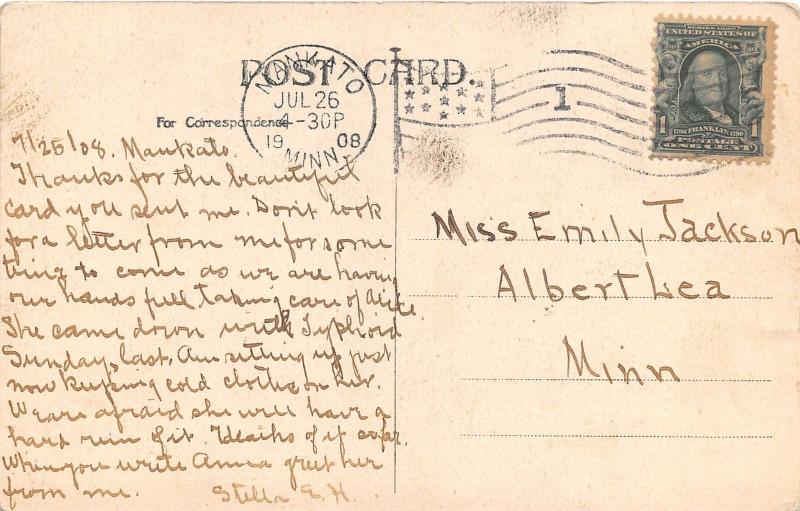 POST CARD.
For Correspondence
MANKATO
JUL 26
4-30P
1908
MINN.
1
SERIES 1902
UNITED STATES OF
AMERICA
1 1
1706 FRANKLIN 1790
POSTAGE
ONE CENT
7/25/08. Mankato.
Thanks for the beautiful
card you sent me. Don't look
for a letter from me for some
time to come as we are having
our hands full taking care of Alice.
She came down with Typhoid
Sunday, last. Am sitting up just
now keeping cold cloths on her.
We are afraid she will have a
hard run of it. 7 deaths of it so far.
When you write Anna greet her
from me. Stella E. H.
Miss Emily Jackson
Albert Lea
Minn